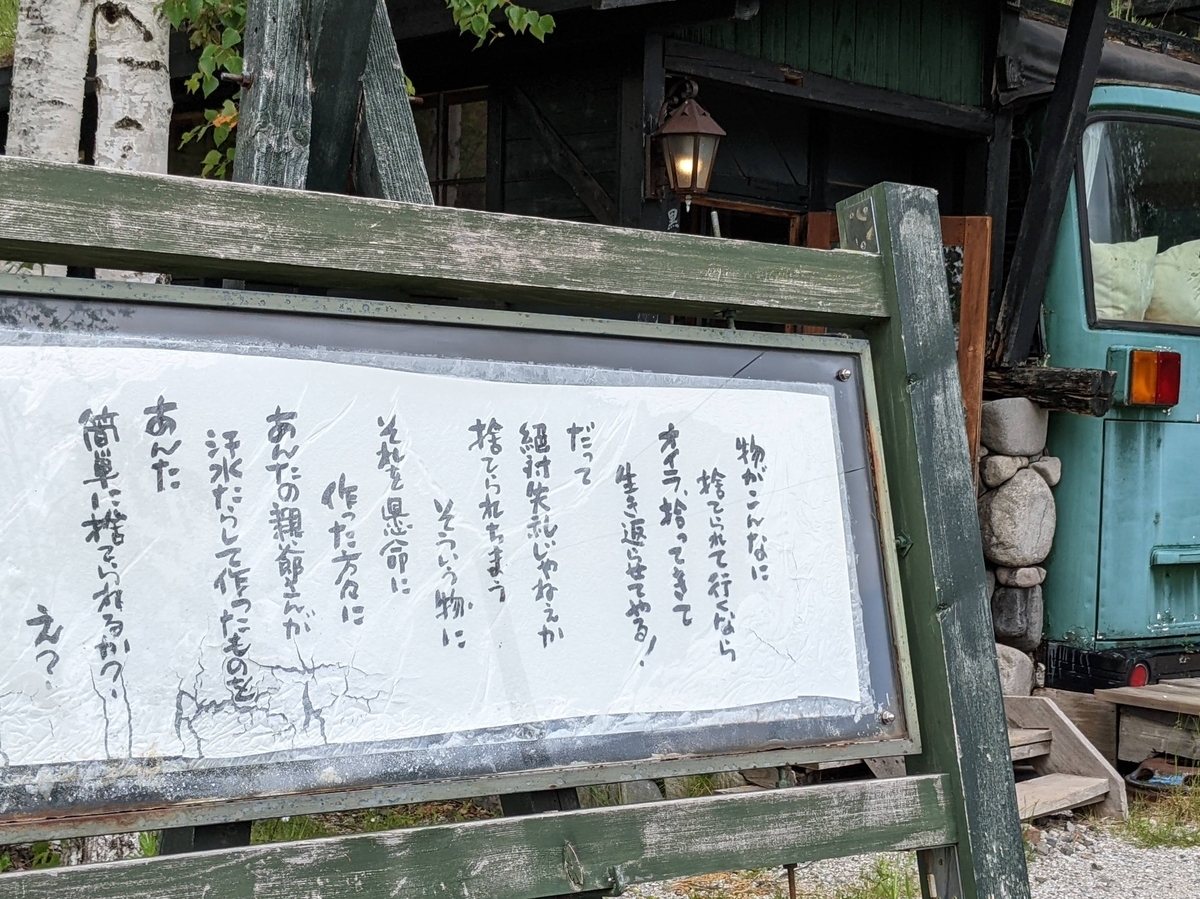 物がこんなに
捨てられて行くなら
オイラ、拾ってきて
生き返らせてやる!
だって
絶対失礼じゃねえか
捨てられちまう
そういう物に
それを懸命に
作った方々に
あんたの親爺さんが
汗水たらして作ったものを
あんた
簡単に捨てられるか?
え?
黒